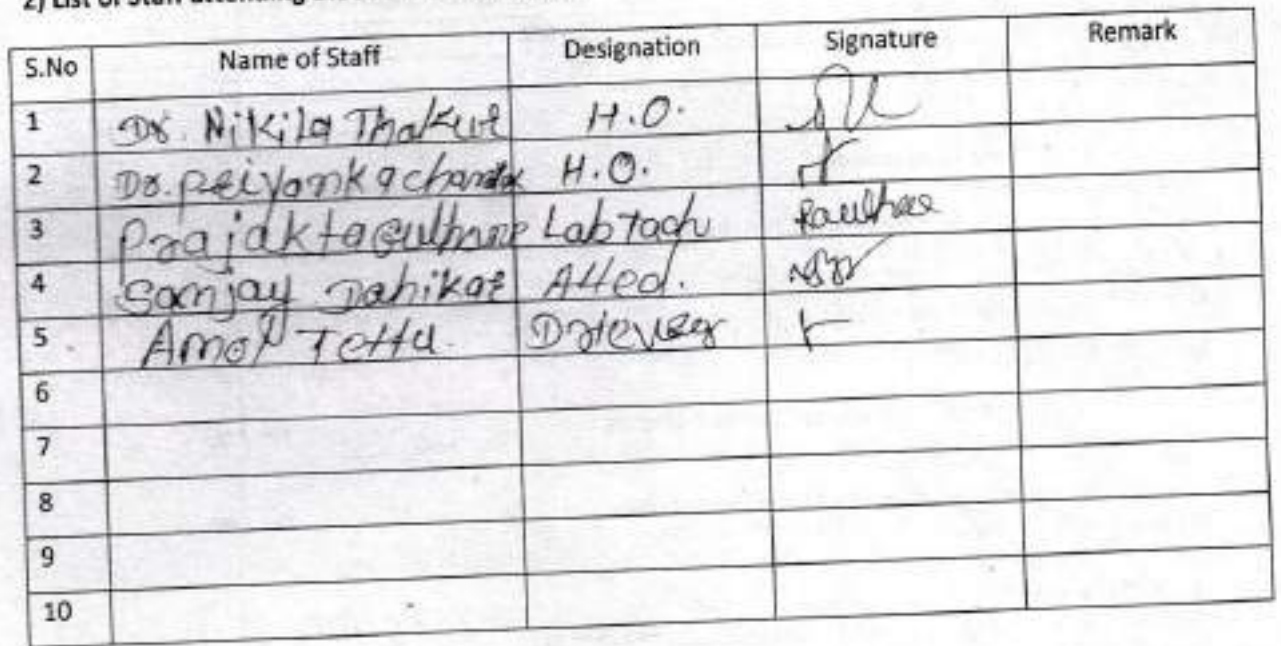 2) List of Staff attending
S.No Name of Staff Designation Signature Remark
1 Dr. Nikila Thakur H.O.
2 Dr. Priyanka chandak H.O.
3 Prajakta Lab Tach
4 Sanjay Dahikar Atted.
5 Amol Tettu.
6
7
8
9
10